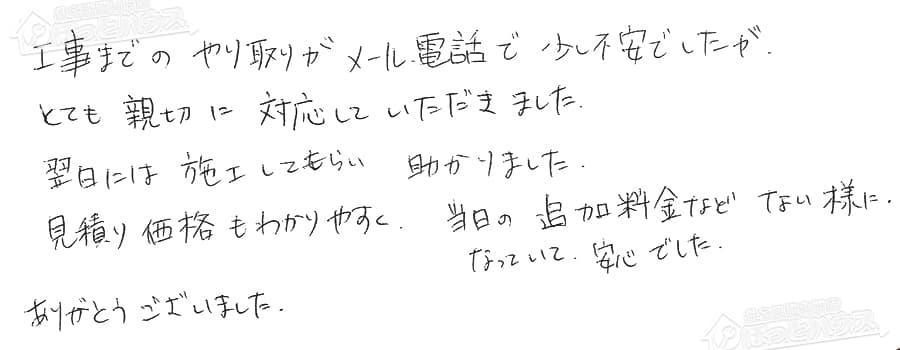 工事までの やり取りが メール.電話で 少し不安でしたが.
とても 親切に 対応して いただきました.
翌日には 施工してもらい 助かりました.
見積り価格もわかりやすく. 当日の 追加料金など ない様に.
なっていて. 安心でした.
ありがとうございました.
ほっとハウス
ほっとハウス